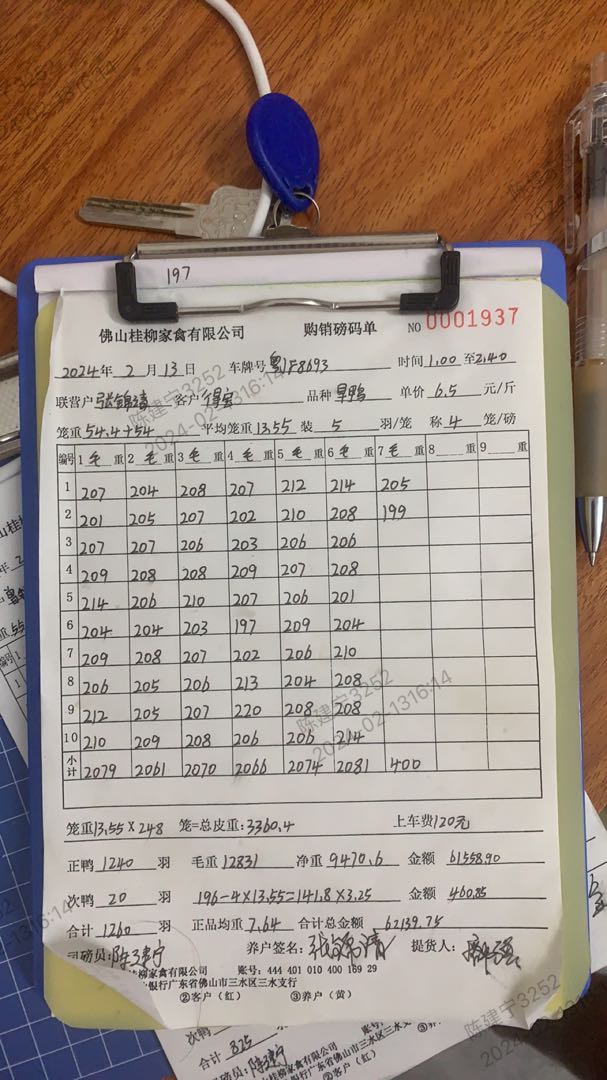 197
佛山桂柳家禽有限公司 购销磅码单 NO 0001937
2024年 2 月 13 日 车牌号 粤JF8693 时间 1.00 至 2.40
联营户 张锦清 客户 得宝 品种 旱鸭 单价 6.5 元/斤
笼重 54.4+54 平均笼重 13.55 装 5 羽/笼 称 4 笼/磅
编号 1 毛 重 2 毛 重 3 毛 重 4 毛 重 5 毛 重 6 毛 重 7 毛 重 8 重 9 重
1 207 204 208 207 212 214 205
2 201 205 207 202 210 208 199
3 207 207 206 203 206 206
4 209 208 208 209 207 208
5 214 206 210 207 206 201
6 204 204 203 197 209 204
7 209 208 207 202 206 210
8 206 205 206 213 204 208
9 212 205 207 220 208 208
10 210 209 208 206 206 214
小计 2079 2061 2070 2066 2074 2081 400
笼重 13.55 X 248 笼=总皮重: 3360.4 上车费 120元
正鸭 1240 羽 毛重 12831 净重 9470.6 金额 61558.90
次鸭 20 羽 196-4×13.55=141.8×3.25 金额 460.85
合计 1260 羽 正品均重 7.64 合计总金额 62139.75
司磅员: 陈建宁 养户签名: 张锦清 提货人:
桂柳家禽有限公司 账号: 444 401 010 400 169 29
银行广东省佛山市三水区三水支行
②客户(红) ③养户(黄)
次鸭
合计 825
陈建宁
家禽有限公司
银行广东省佛山市三水区三水支
②客户(红)
陈建宁3252
2024-02-1316:14